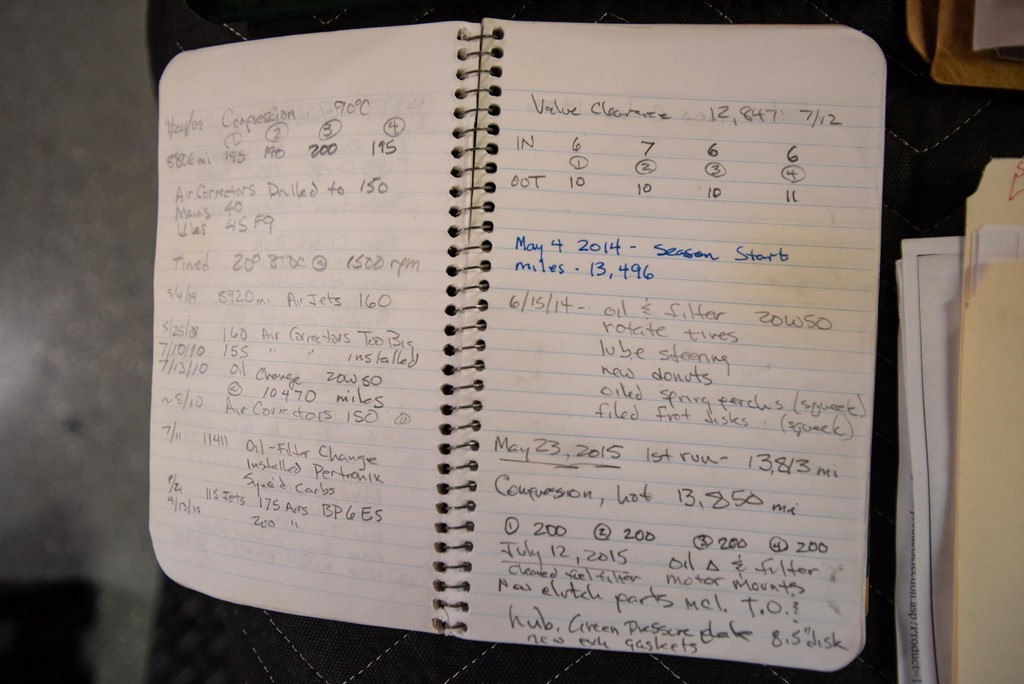 Compression 90°C
① ② ③ ④
8806 mi 195 190 200 195
Air Correctors Drilled to 150
Mains 40
Idles 45 F9
Timed 20° BTDC @ 1500 rpm
5/4/09 8920 mi Air Jets 160
5/25/09 160 Air Correctors Too Big
7/10/10 155 " " installed
7/13/10 Oil Change 20W50
@ 10470 miles
~8/10 Air Correctors 150
7/11 11411 Oil-Filter Change
Installed Pertronix
Sync'd Carbs
4/13/12 115 Jets 175 Airs BP6ES
200 "
Valve Clearance 12,847 7/12
IN 6 7 6 6
① ② ③ ④
OUT 10 10 10 11
May 4 2014 - Season Start
miles - 13,496
6/15/14 - oil & filter 20W50
rotate tires
lube steering
new donuts
oiled spring perches (squeek)
filed frnt disks. (squeek)
May 23, 2015 1st run - 13,813 mi
Compression, hot 13,850 mi
① 200 ② 200 ③ 200 ④ 200
July 12, 2015 oil Δ & filter
Cleaned fuel filter motor mounts
New clutch parts incl. T.O. &
hub. Green Pressure plate 8.5" disk
new exh gaskets